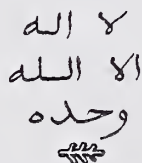 لا اله
الا الله
وحده